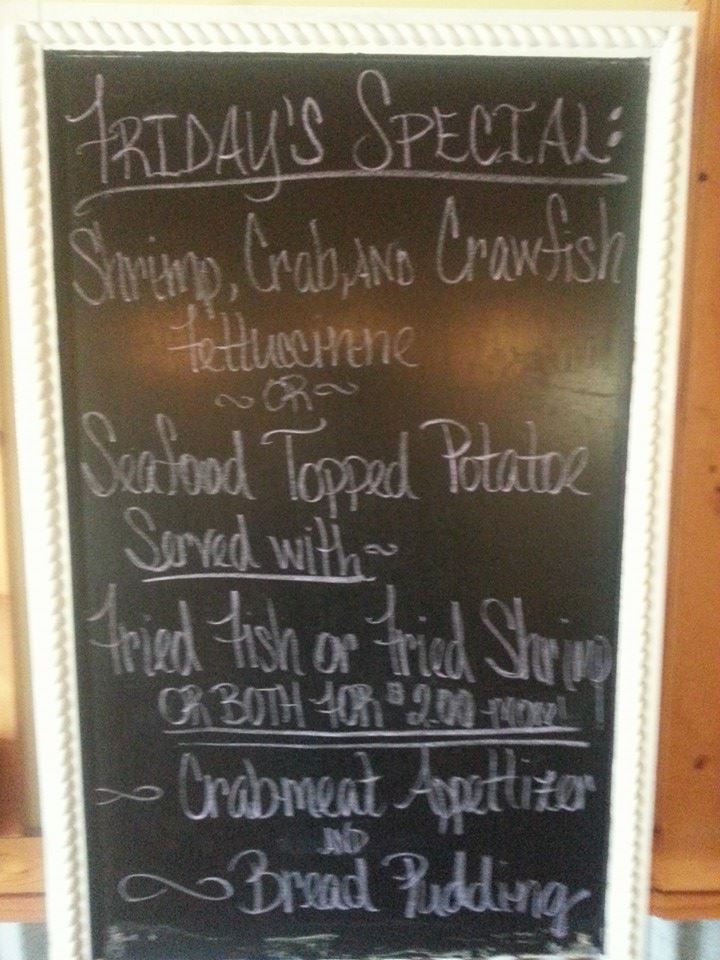 FRIDAY'S SPECIAL:
Shrimp, Crab, AND Crawfish
Fettuccinne
~ OR ~
Seafood Topped Potatoe
Served with~
Fried Fish or Fried Shrimp
OR BOTH FOR $2.00 MORE!
Crabmeat Appettizer
AND
Bread Pudding